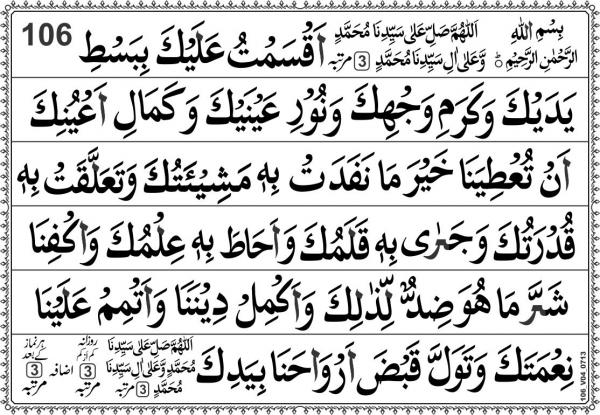 106
بِسْمِ اللهِ
الرَّحْمٰنِ الرَّحِيْمِ
اَللّٰهُمَّ صَلِّ عَلٰى سَيِّدِنَا مُحَمَّدٍ
وَّعَلٰى اٰلِ سَيِّدِنَا مُحَمَّدٍ 3 مرتبہ
اَقْسَمْتُ عَلَيْكَ بِبَسْطِ
يَدَيْكَ وَكَرَمِ وَجْهِكَ وَنُوْرِ عَيْنَيْكَ وَكَمَالِ اَعْيُنِكَ
اَنْ تُعْطِيَنَا خَيْرَ مَا نَفَدَتْ بِهٖ مَشِيْئَتُكَ وَتَعَلَّقَتْ بِهٖ
قُدْرَتُكَ وَجَرٰى بِهٖ قَلَمُكَ وَاَحَاطَ بِهٖ عِلْمُكَ وَاكْفِنَا
شَرَّ مَا هُوَ ضِدٌّ لِّذٰلِكَ وَاَكْمِلْ دِيْنَنَا وَاَتْمِمْ عَلَيْنَا
نِعْمَتَكَ وَتَوَلَّ قَبْضَ اَرْوَاحَنَا بِيَدِكَ
اَللّٰهُمَّ صَلِّ عَلٰى سَيِّدِنَا
مُحَمَّدٍ وَّعَلٰى اٰلِ سَيِّدِنَا
مُحَمَّدٍ 3 مرتبہ
روزانہ
کم از کم
3
مرتبہ
اضافہ
ہر نماز
کے بعد
3
مرتبہ
106_V04_0713